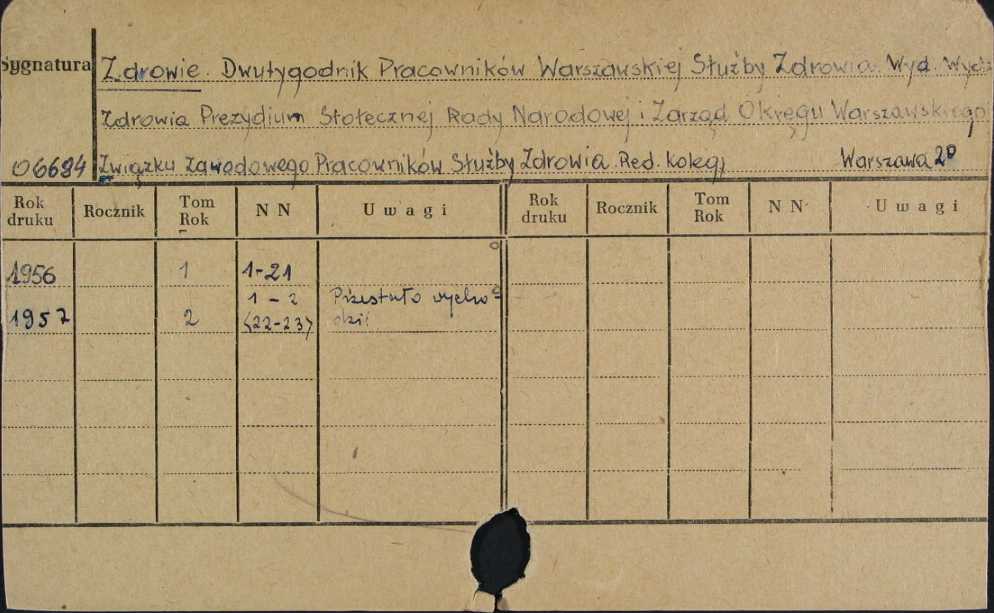 Sygnatura
Zdrowie. Dwutygodnik Pracowników Warszawskiej Służby Zdrowia. Wyd. Wydz
Zdrowia Prezydium Stołecznej Rady Narodowej i Zarząd Okręgu Warszawskiego
06694 Związku Zawodowego Pracowników Służby Zdrowia. Red. kolegj Warszawa 20
Rok druku Rocznik Tom Rok N N Uwagi Rok druku Rocznik Tom Rok N N Uwagi
1956 1 1-21
1-2 Przestało wycho
1957 2 (22-23) dzić